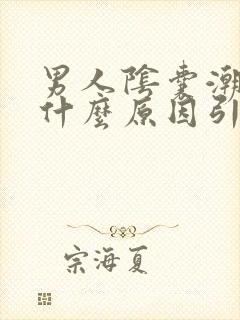 男人陰囊潮
什麼原因引
宗海夏